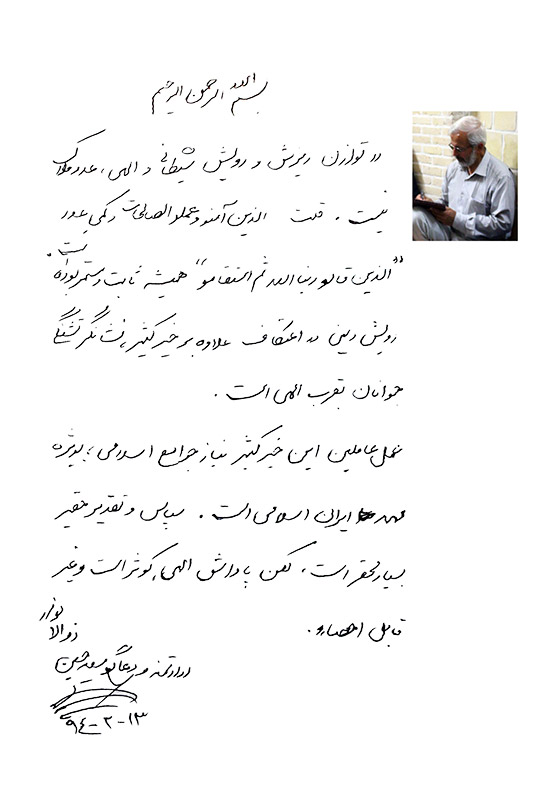 بسم الله الرحمن الرحیم
در توازن ریزش و رویش شیطانی و الهی، عدد ملاک
نیست. قلت الذین آمنو و عملو الصالحات و کمی عدد
"الذین قالو ربنا الله ثم استقامو" همیشه ثابت و مستمر بوده است.
رویش دینی در اعتکاف علاوه بر خیر کثیر، نشانگر تشنگی
جوانان بقرب الهی است.
عمل عاملین این خیر کثیر نیاز جوامع اسلامی، بویژه
مهد ایران اسلامی است. سپاس و تقدیر حقیر
بسیار محقر است، لکن پاداش الهی، کوثر است و غیر
قابل احصاء.
ذوالانوار
ارادتمند و دعاگو سید حسین
۹۴-۲-۱۳